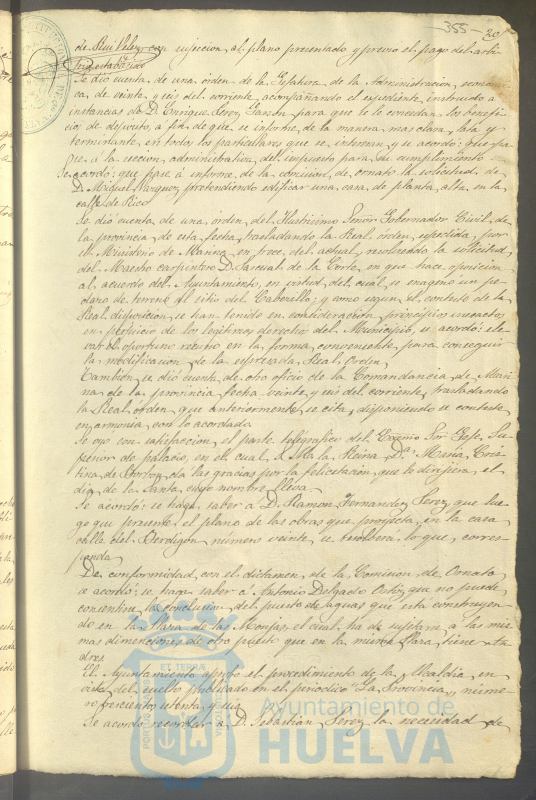 355 - 20
de Rui Velez con sujecion al plano presentado y previo el pago del arbi
trio establecido
Se dió cuenta de una órden de la Gefatura de la Administracion económi
ca de veinte y seis del corriente acompañando el espediente instruido a
instancias de D. Enrique Perez Ganon para que se le concedan los benefi
cios de deposito, a fin de que se informe de la manera mas clara, lata y
terminante, en todos los particulares que se interesan y se acordó: que pa
se á la seccion administrativa del impuesto para su cumplimiento
Se acordó: que pase á informe de la comision de ornato la solicitud de
D. Miguel Marquez, pretendiendo edificar una casa de planta alta en la
calle de Rico
Se dió cuenta de una órden del Ilustrisimo Señor Gobernador Civil de
la provincia de esta fecha, trasladando la Real órden, espedida por
el Ministerio de Marina en trece del actual, resolviendo la solicitud
del Maestro carpintero D. Pascual de la Corte, en que hace oposicion
al acuerdo del Ayuntamiento, en virtud del cual se enageno un pe
dazo de terreno al sitio del Cabezillo: y como segun el contesto de la
Real disposicion se han tenido en consideracion principios inexactos
en perjuicio de los legitimos derechos del Municipio, se acordó: ele
var el oportuno recurso en la forma conveniente para conseguir
la modificacion de la espresada Real Orden
Tambien se dió cuenta de otro oficio de la Comandancia de Mari
na de la provincia fecha veinte y seis del corriente, trasladando
la Real órden que anteriormente se cita, disponiendo se conteste
en armonia con lo acordado
Se oyó con satisfaccion el parte telegrafico del Excmo Sor Gefe Su
perior de palacio, en el cual S. M. la Reina Da. Maria Cris
tina de Borbon da las gracias por la felicitacion que le dirigiera el
dia de la Santa cuyo nombre lleva
Se acordó: se haga saber á D. Ramon Fernandez Perez, que lue
go que presente el plano de las obras que proyecta en la casa
calle del Perdigon número veinte se resolverá lo que corres
ponda
De conformidad con el dictamen de la Comision de Ornato
se acordó: se haga saber á Antonio Delgado Ortiz, que no puede
consentirse la conclusion del puesto de aguas que esta construyen
do en la Plaza de las Monjas, el cual ha de sujetarse á las mis
mas dimenciones de otro puesto que en la misma Plaza tiene
El Ayuntamiento aprobó el procedimiento de la Alcaldia en
vista del suelto publicado en el periodico "La Provincia" núme
ro trescientos ochenta y seis
Se acordó recordar á D. Sebastian Perez la necesidad de
PORTUS MARIS ET TERRÆ CUSTODIA
Ayuntamiento de
HUELVA